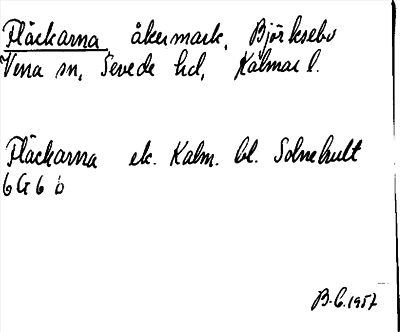 Fläckarna åkermark, Björksebo
Vena sn, Sevede hd, Kalmar l.
Fläckarna ek. Kalm. bl. Solnehult
6G6b
B.C. 1957